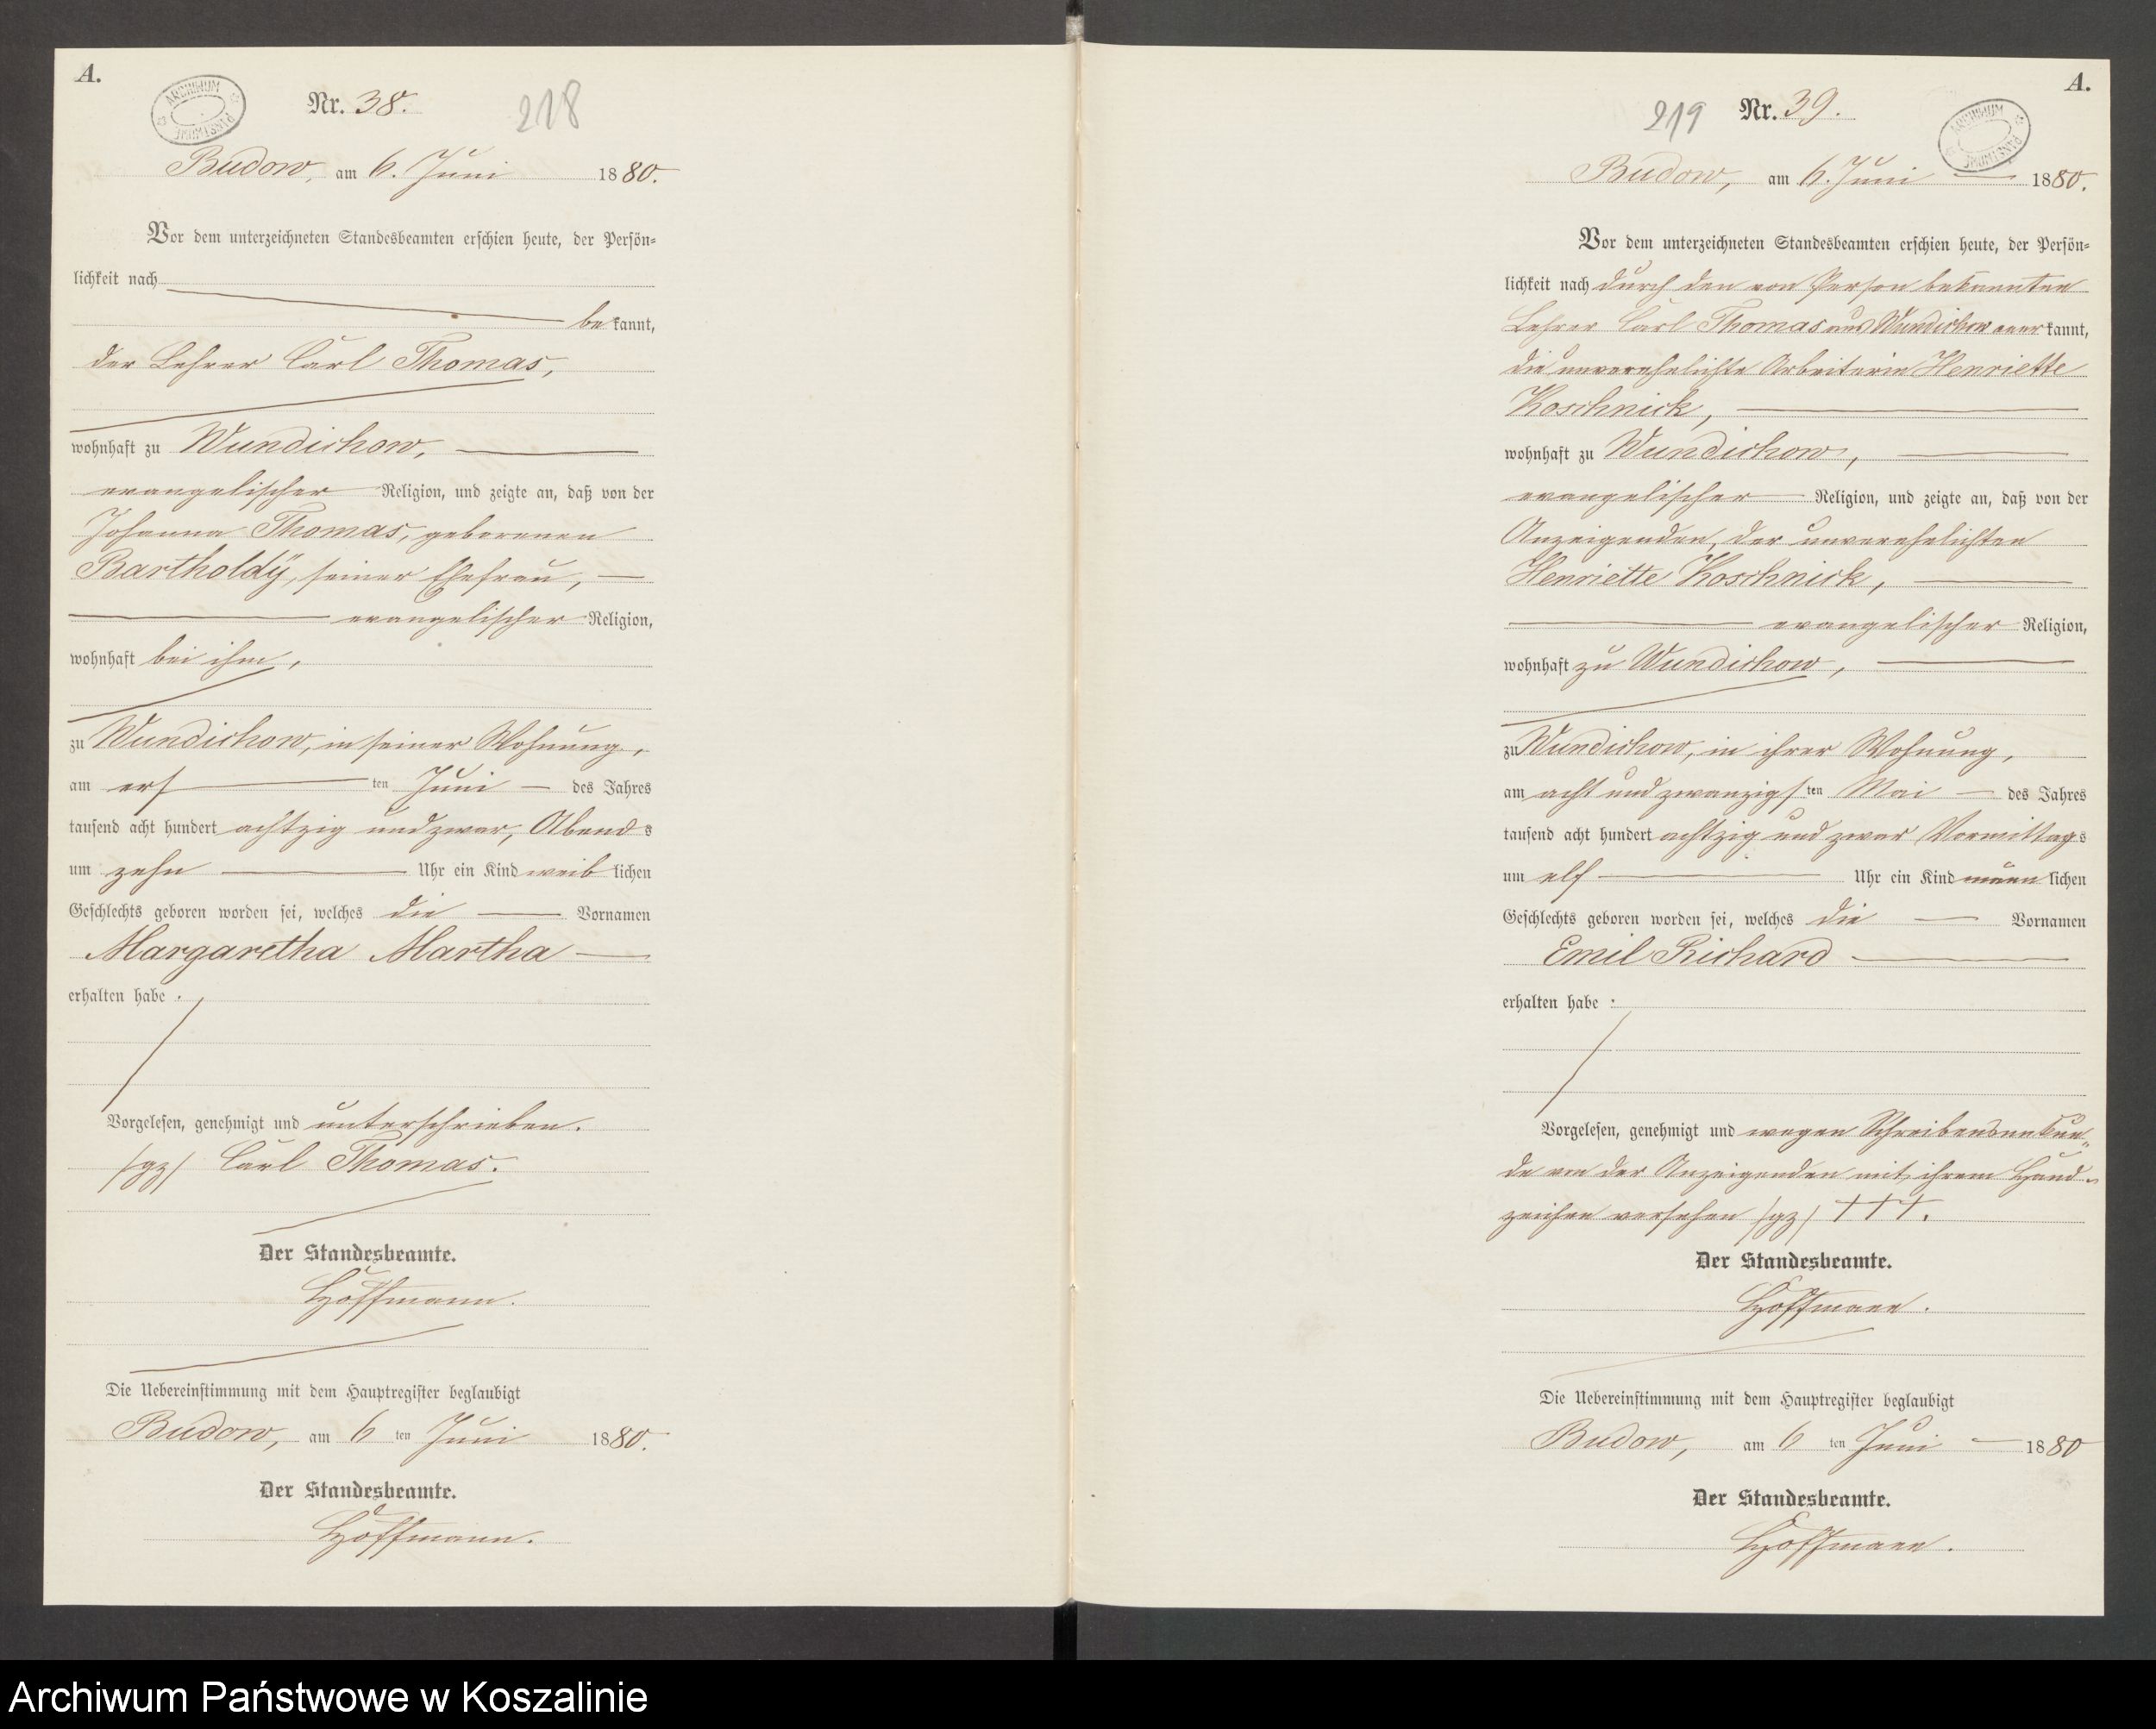 A.
ARCHIWUM PAŃSTWOWE
Nr. 38.
218
Budow, am 6. Juni 1880.
Vor dem unterzeichneten Standesbeamten erschien heute, der Persön=
lichkeit nach
bekannt,
der Lehrer Carl Thomas,
wohnhaft zu Wundichow,
evangelischer Religion, und zeigte an, daß von der
Johanna Thomas, geborenen
Bartholdÿ, seiner Ehefrau,
evangelischer Religion,
wohnhaft bei ihm,
zu Wundichow, in seiner Wohnung,
am ersten Juni des Jahres
tausend acht hundert achtzig und zwar, Abends
um zehn Uhr ein Kind weiblichen
Geschlechts geboren worden sei, welches die Vornamen
Margaretha Martha
erhalten habe.
Vorgelesen, genehmigt und unterschrieben.
/gz/ Carl Thomas.
Der Standesbeamte.
Hoffmann.
Die Uebereinstimmung mit dem Hauptregister beglaubigt
Budow, am 6ten Juni 1880.
Der Standesbeamte.
Hoffmann.
A.
219
Nr. 39.
ARCHIWUM PAŃSTWOWE
Budow, am 6. Juni 1880.
Vor dem unterzeichneten Standesbeamten erschien heute, der Persön=
lichkeit nach durch den von Person bekannten
Lehrer Carl Thomas aus Wundichow anerkannt,
die unverehelichte Arbeiterin Henriette
Koschnick,
wohnhaft zu Wundichow,
evangelischer Religion, und zeigte an, daß von der
Anzeigenden, der unverehelichten
Henriette Koschnick,
evangelischer Religion,
wohnhaft zu Wundichow,
zu Wundichow, in ihrer Wohnung,
am acht und zwanzigsten Mai des Jahres
tausend acht hundert achtzig und zwar Vormittags
um elf Uhr ein Kind männlichen
Geschlechts geboren worden sei, welches die Vornamen
Emil Richard
erhalten habe.
Vorgelesen, genehmigt und wegen Schreibensunkun=
de von der Anzeigenden mit ihrem Hand=
zeichen versehen /gz/ +++.
Der Standesbeamte.
Hoffmann.
Die Uebereinstimmung mit dem Hauptregister beglaubigt
Budow, am 6ten Juni 1880
Der Standesbeamte.
Hoffmann.
Archiwum Państwowe w Koszalinie